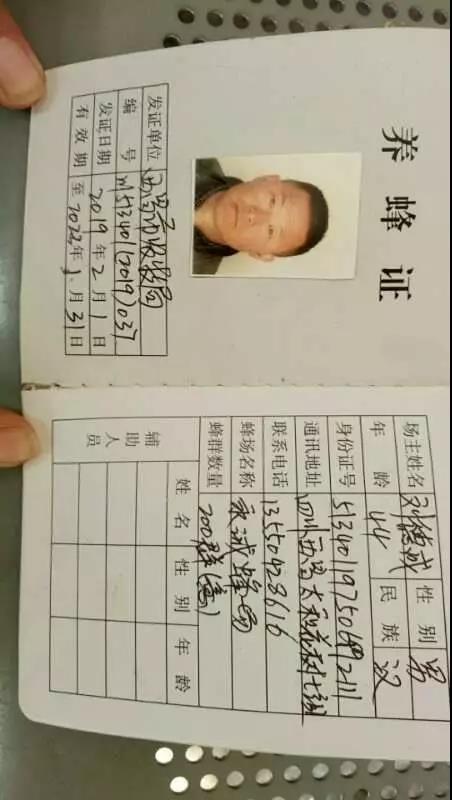 养蜂证
发证单位 西昌市畜牧局
编号 川5134011(2019)037
发证日期 2019年2月1日
有效期 至2022年1月31日
场主姓名 刘德成 性别 男
年龄 44 民族 汉
身份证号
通讯地址 四川西昌太和花村七组
联系电话 13550428616
蜂场名称 永诚蜂场
蜂群数量 200群(意)
辅助人员 姓名 性别 年龄